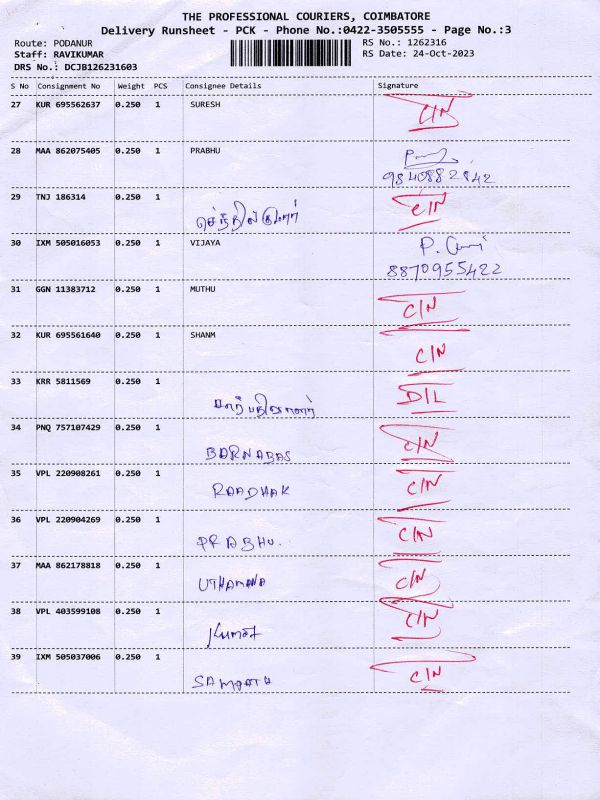 THE PROFESSIONAL COURIERS, COIMBATORE
Delivery Runsheet - PCK - Phone No.:0422-3505555 - Page No.:3
Route: PODANUR
RS No.: 1262316
Staff: RAVIKUMAR
RS Date: 24-Oct-2023
DRS No.: DCJB126231603
S No Consignment No Weight PCS Consignee Details Signature
27 KUR 695562637 0.250 1 SURESH C/N
28 MAA 862075405 0.250 1 PRABHU
9840882842
29 TNJ 186314 0.250 1 C/N
செந்தில்குமார்
30 IXM 505016053 0.250 1 VIJAYA
8870955422
31 GGN 11383712 0.250 1 MUTHU
C/N
32 KUR 695561640 0.250 1 SHANM
C/N
33 KRR 5811569 0.250 1 D/L
34 PNQ 757107429 0.250 1 C/N
BARNABAS
35 VPL 220908261 0.250 1 C/N
RAADHAK
36 VPL 220904269 0.250 1 C/N
PRABHU.
37 MAA 862178818 0.250 1 C/N
UTHAMANA
38 VPL 403599108 0.250 1 C/N
Kumar
39 IXM 505037006 0.250 1 C/N
SAMPATH